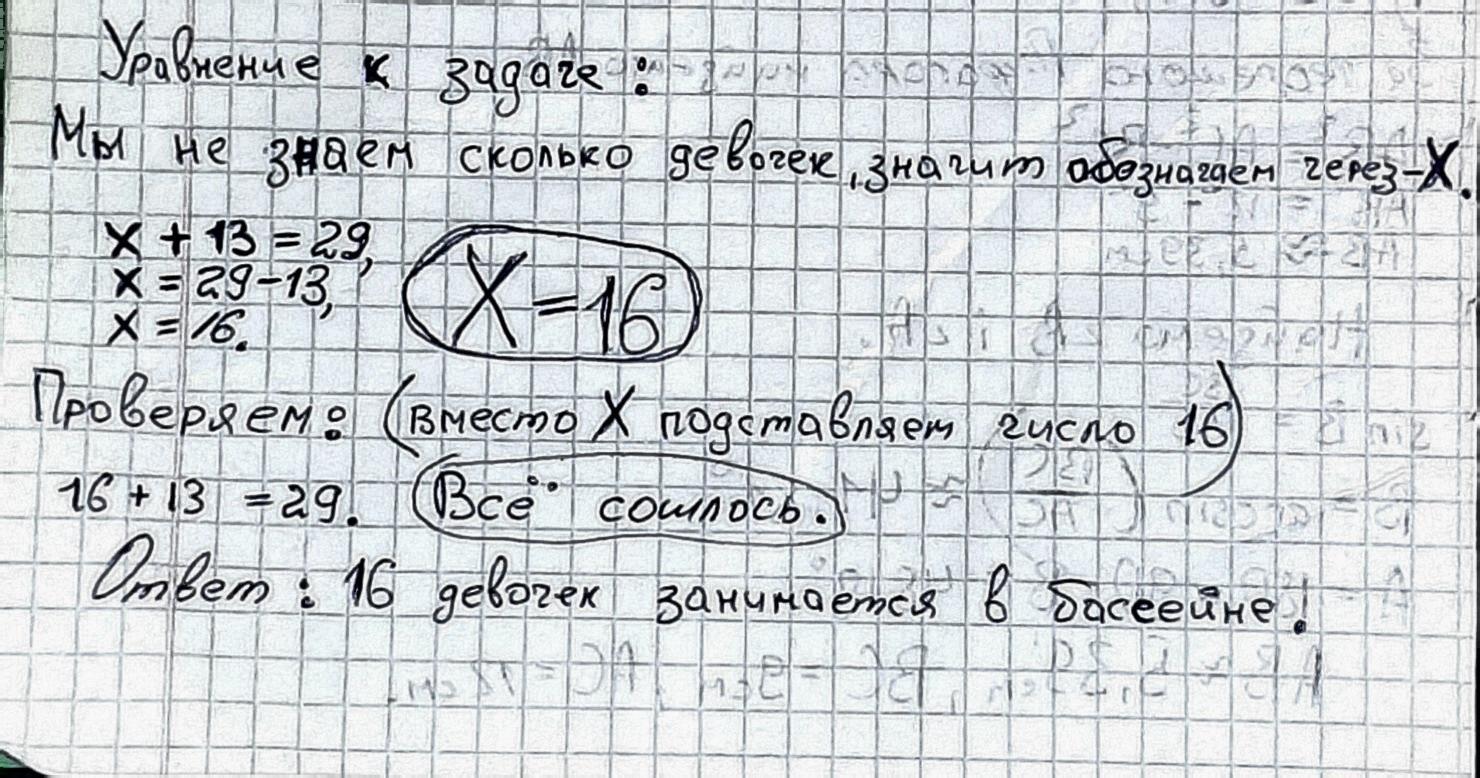 Уравнение к задаче:
Мы не знаем сколько девочек, значит обозначаем через-X.
x + 13 = 29,
x = 29-13,
x = 16.
X = 16
Проверяем: (вместо X подставляем число 16)
16 + 13 = 29. Всё сошлось.
Ответ: 16 девочек занимается в басеейне!